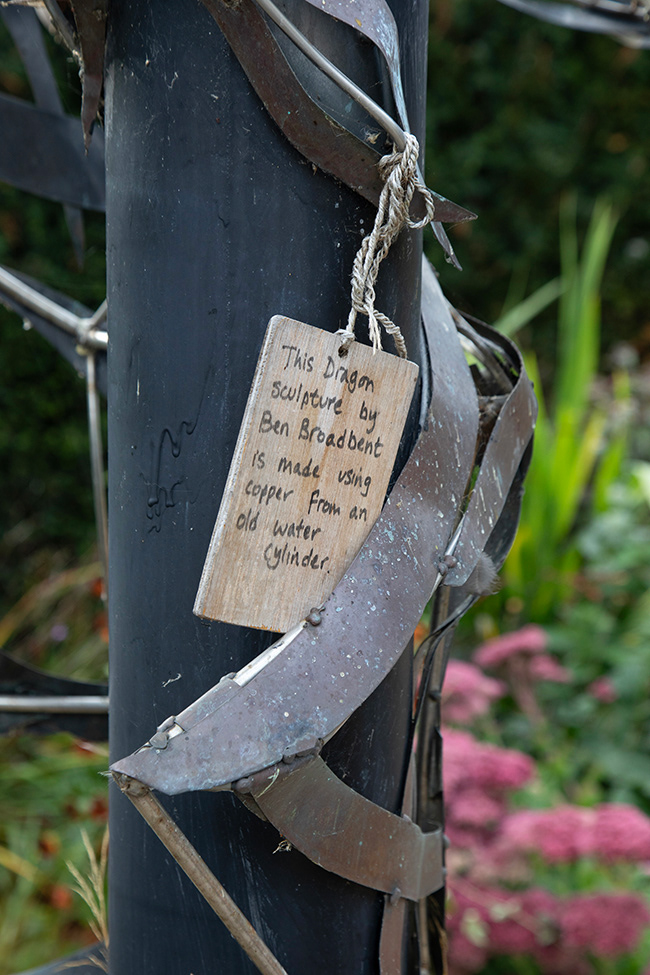 This Dragon
sculpture by
Ben Broadbent
is made using
copper from an
old water
cylinder.